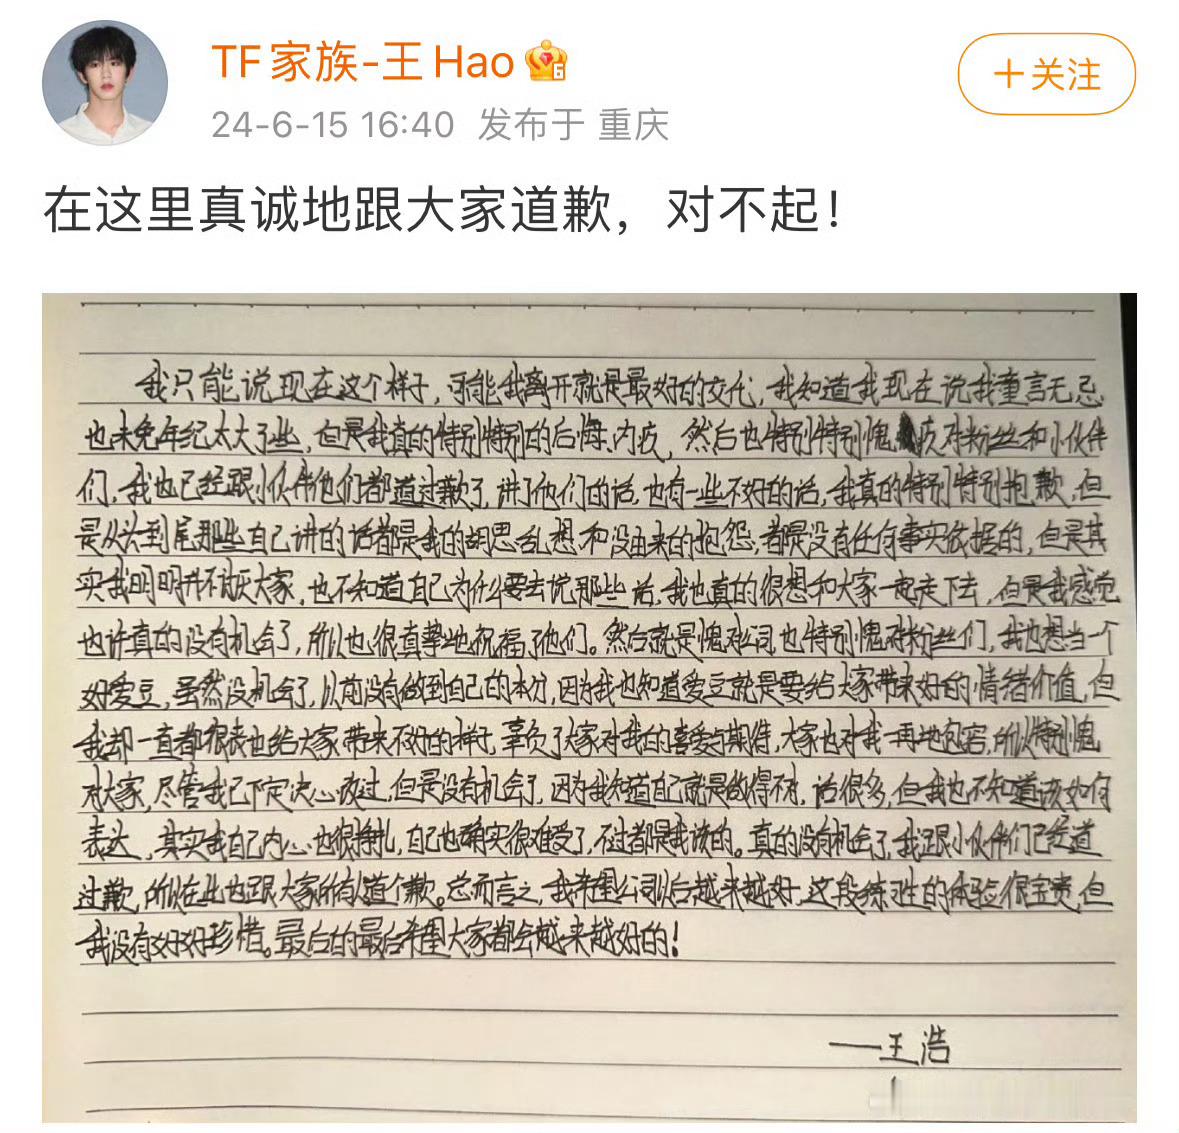 TF家族-王Hao
6
+关注
24-6-15 16:40 发布于 重庆
在这里真诚地跟大家道歉，对不起！
我只能说现在这个样子，可能我离开就是最好的交代，我知道我现在说我童言无忌
也未免年纪太大了些，但是我真的特别特别的后悔、内疚，然后也特别特别愧疚对粉丝和小伙伴
们，我也已经跟小伙伴他们都道过歉了，讲了他们的话，也有一些不好的话，我真的特别特别抱歉，但
是从头到尾那些自己讲的话都是我的胡思乱想和没由来的抱怨，都是没有任何事实依据的，但是其
实我明明并不讨厌大家，也不知道自己为什么要去说那些话，我也真的很想和大家一起走下去，但是我感觉
也许真的没有机会了，所以也很真挚地祝福了他们。然后就是愧对公司也特别愧对粉丝们，我也想当一个
好爱豆，虽然没机会了，以前没有做到自己的本分，因为我也知道爱豆就是要给大家带来好的情绪价值，但
我却一直都很丧也给大家带来不好的样子，辜负了大家对我的喜爱与期待，大家也对我一再地包容，所以特别愧
对大家，尽管我已下定决心改过，但是没有机会了，因为我知道自己就是做得不对，话很多，但我也不知道该如何
表达，其实我自己内心也很挣扎，自己也确实很难受了，不过都是我该的。真的没有机会了，我跟小伙伴们已经道
过歉，所以在此也跟大家所有人道个歉。总而言之，我希望公司以后越来越好，这段练习生的体验很宝贵，但
我没有好好珍惜。最后的最后希望大家都会越来越好的！
——王浩